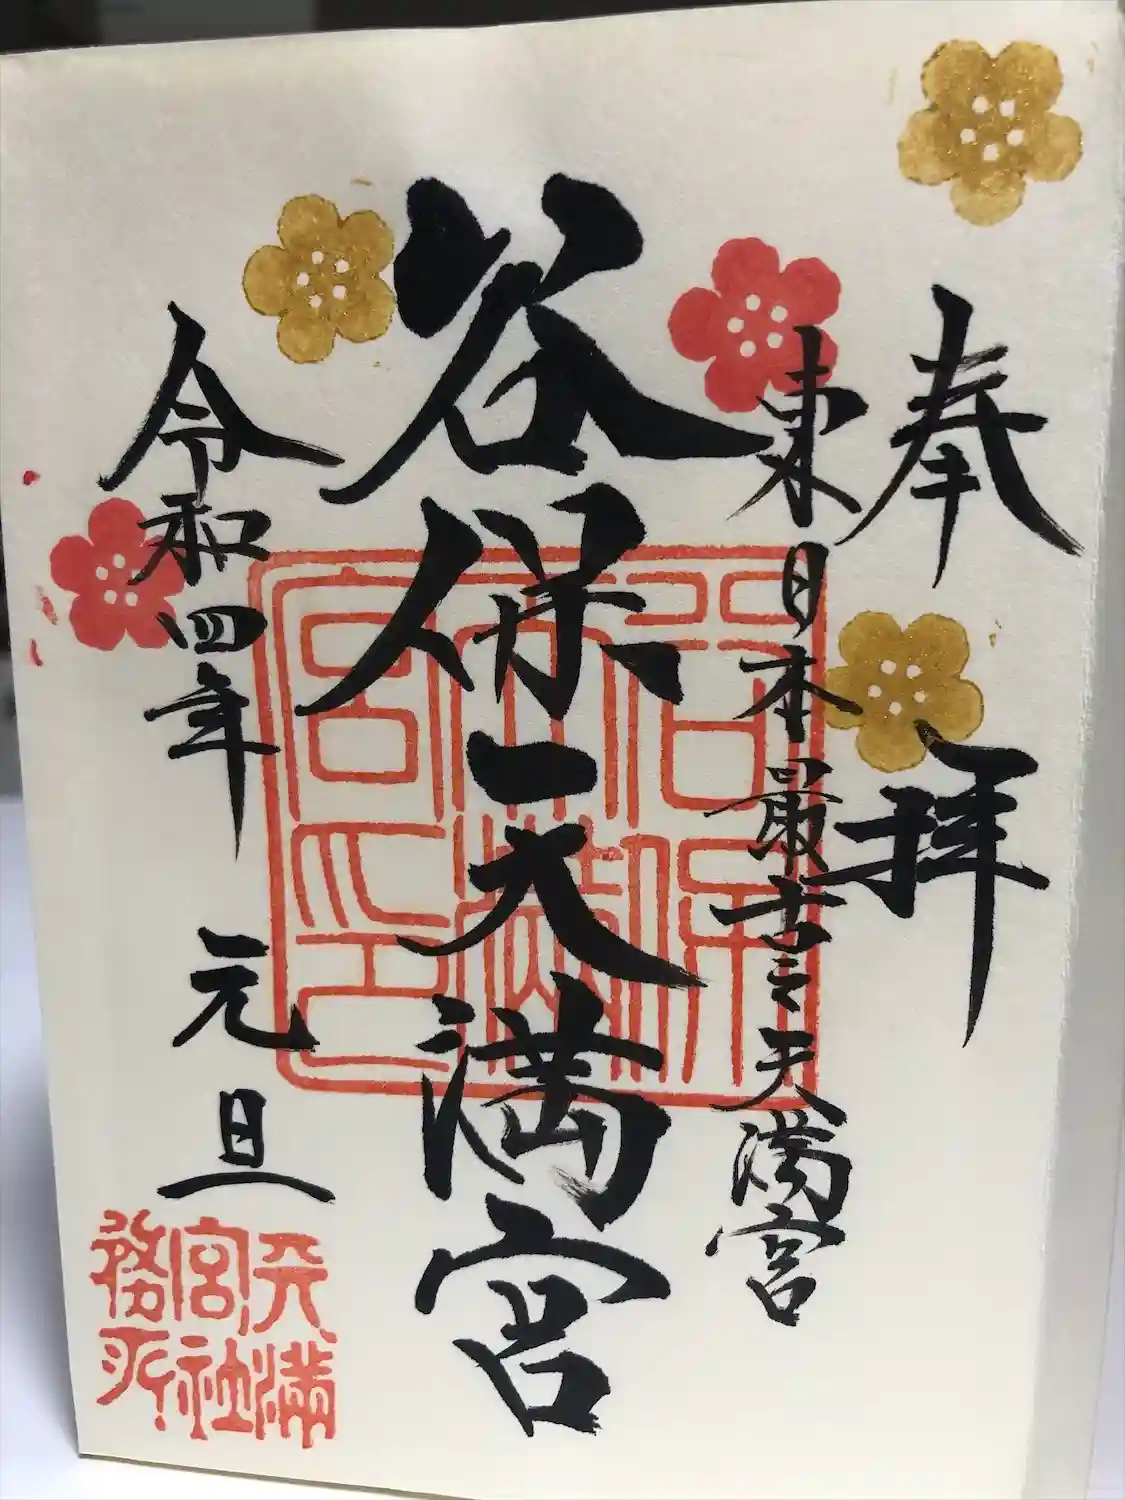 奉拝
東日本最古之天満宮
谷保天満宮
令和四年 元旦
谷保
天満
宮印
天満
宮社
務所